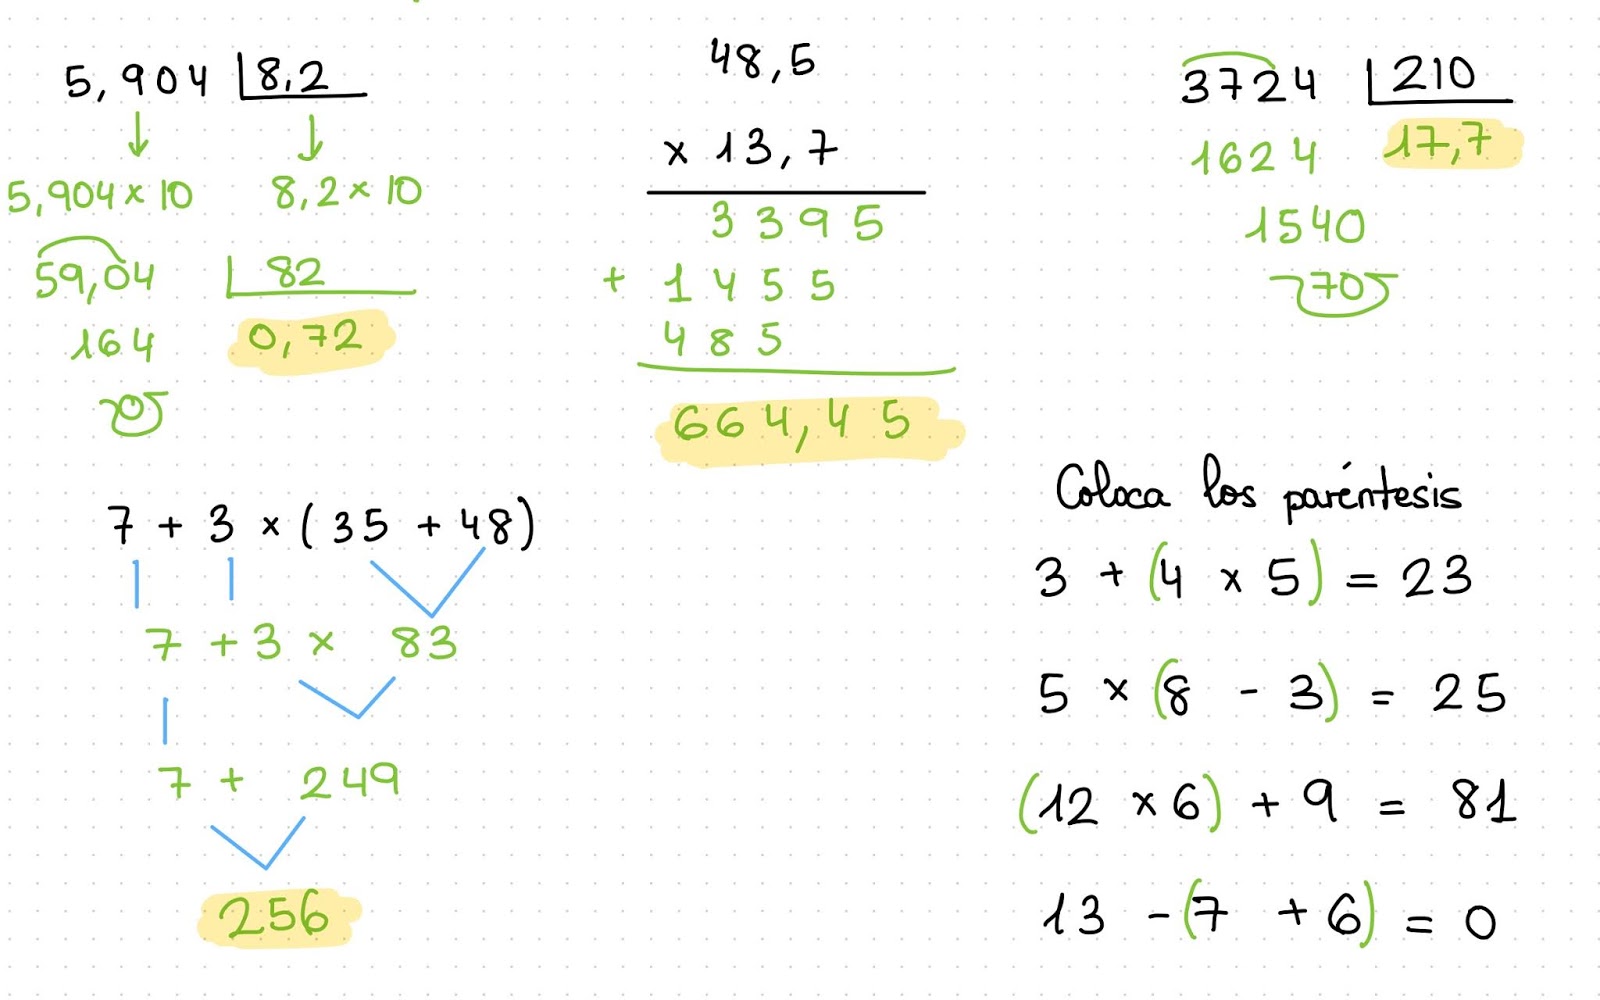 5,904 8,2
5,904 x 10 8,2 x 10
59,04 82
164 0,72
0
48,5
x 13,7
3 3 9 5
+ 1 4 5 5
4 8 5
664,45
3724 210
1624 17,7
1540
70
7 + 3 x (35 + 48)
7 + 3 x 83
7 + 249
256
Coloca los paréntesis
3 + (4 x 5) = 23
5 x (8 - 3) = 25
(12 x 6) + 9 = 81
13 - (7 + 6) = 0